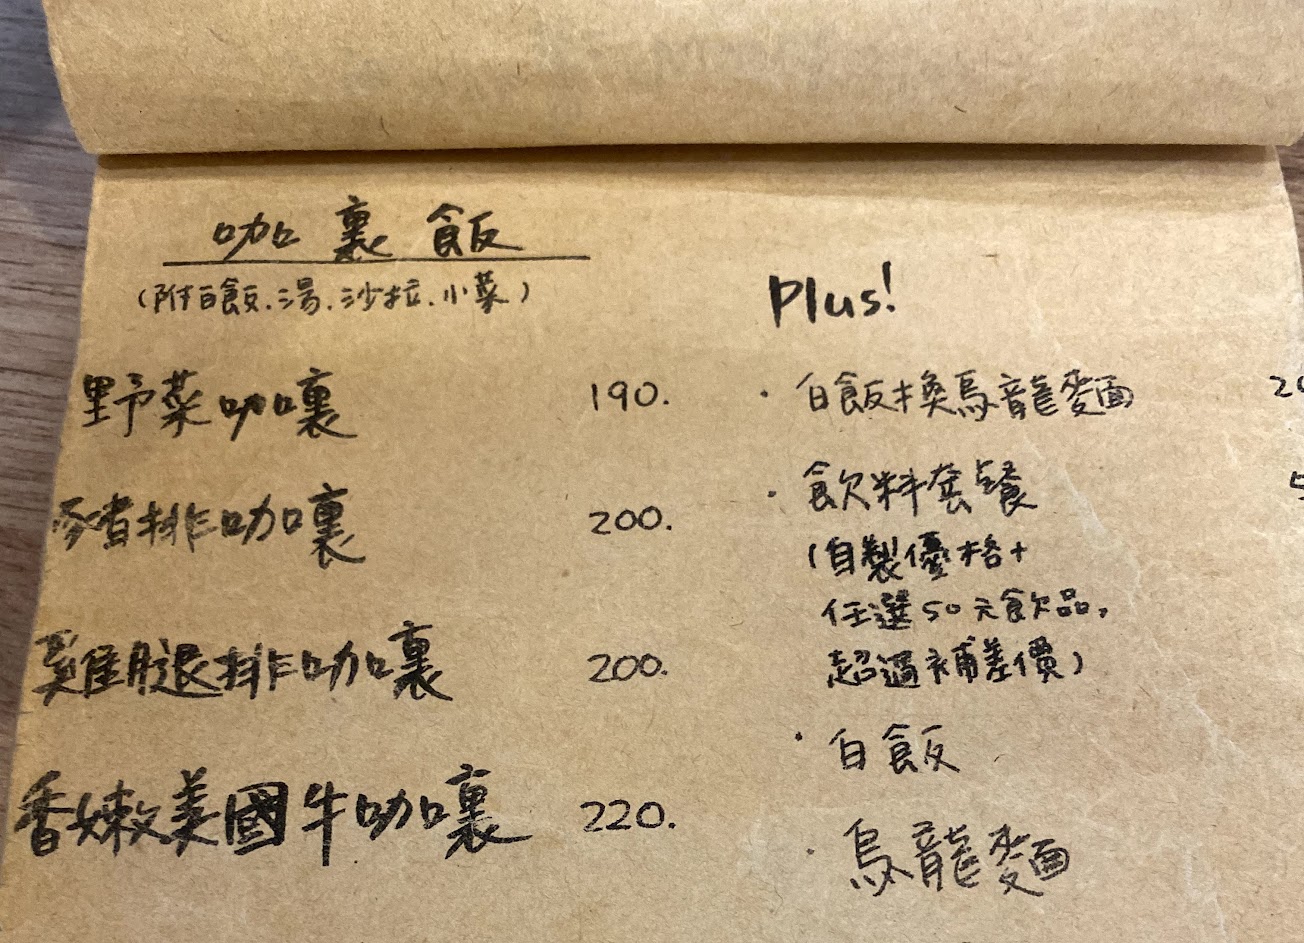 咖裏飯
(附白飯.湯.沙拉.小菜)
野菜咖嚷 190.
豬排咖嚷 200.
雞腿排咖嚷 200.
香嫩美國牛咖嚷 220.
Plus!
· 白飯換烏龍麵
· 飲料套餐
(自製優格+
任選50元飲品,
超過補差價)
· 白飯
· 烏龍麵